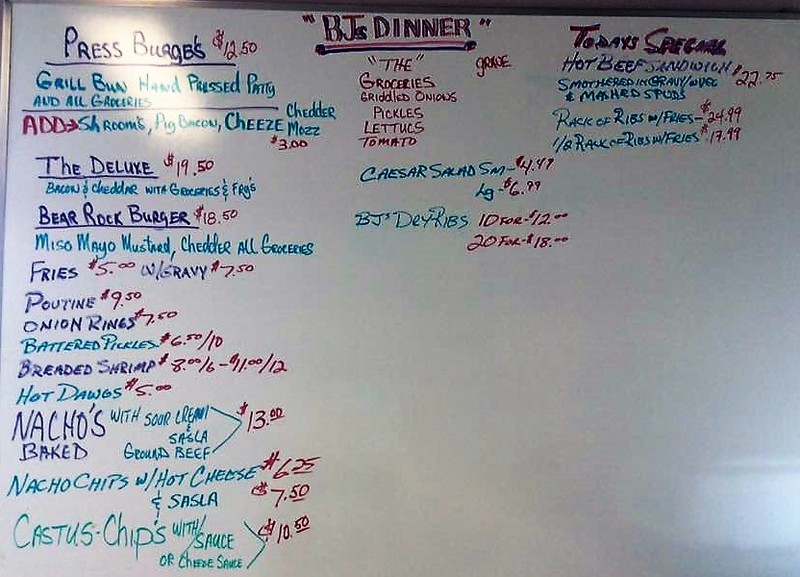 "BJs DINNER"
PRESS BURGE'S $12.50
GRILL BUN HAND PRESSED PATTY
AND ALL GROCERIES
ADD→ SHROOMS, PIG BACON, CHEEZE CHEDDER
MOZZ
$3.00
THE DELUXE $19.50
BACON & CHEDDAR WITH GROCERIES & FRY'S
BEAR ROCK BURGER $18.50
MISO MAYO MUSTARD, CHEDDER ALL GROCERIES
FRIES $5.00 W/GRAVY $7.50
POUTINE $9.50
ONION RINGS $7.50
BATTERED PICKLES $6.50/10
BREADED SHRIMP $8.00/6 - $11.00/12
HOT DAWGS $5.00
NACHO'S WITH SOUR CREAM $13.00
& SASLA
BAKED GROUND BEEF
NACHO CHIPS W/HOT CHEESE $6.25
& SASLA $7.50
CASTUS-CHIP'S WITH/SAUCE $10.50
OR CHEESE SAUCE
"THE"
GROCERIES
GRIDDLED ONIONS
PICKLES
LETTUCS
TOMATO
CAESAR SALAD SM-$4.99
Lg-$6.99
BJ'S DRY RIBS 10 FOR-$12.00
20 FOR-$18.00
TODAYS SPECIAL
HOT BEEF SANDWICH $22.75
SMOTHERED IN GRAVY W/VEG
& MASHRD SPUDS
RACK OF RIBS W/FRIES-$24.99
1/2 RACK OF RIBS W/FRIES $17.99